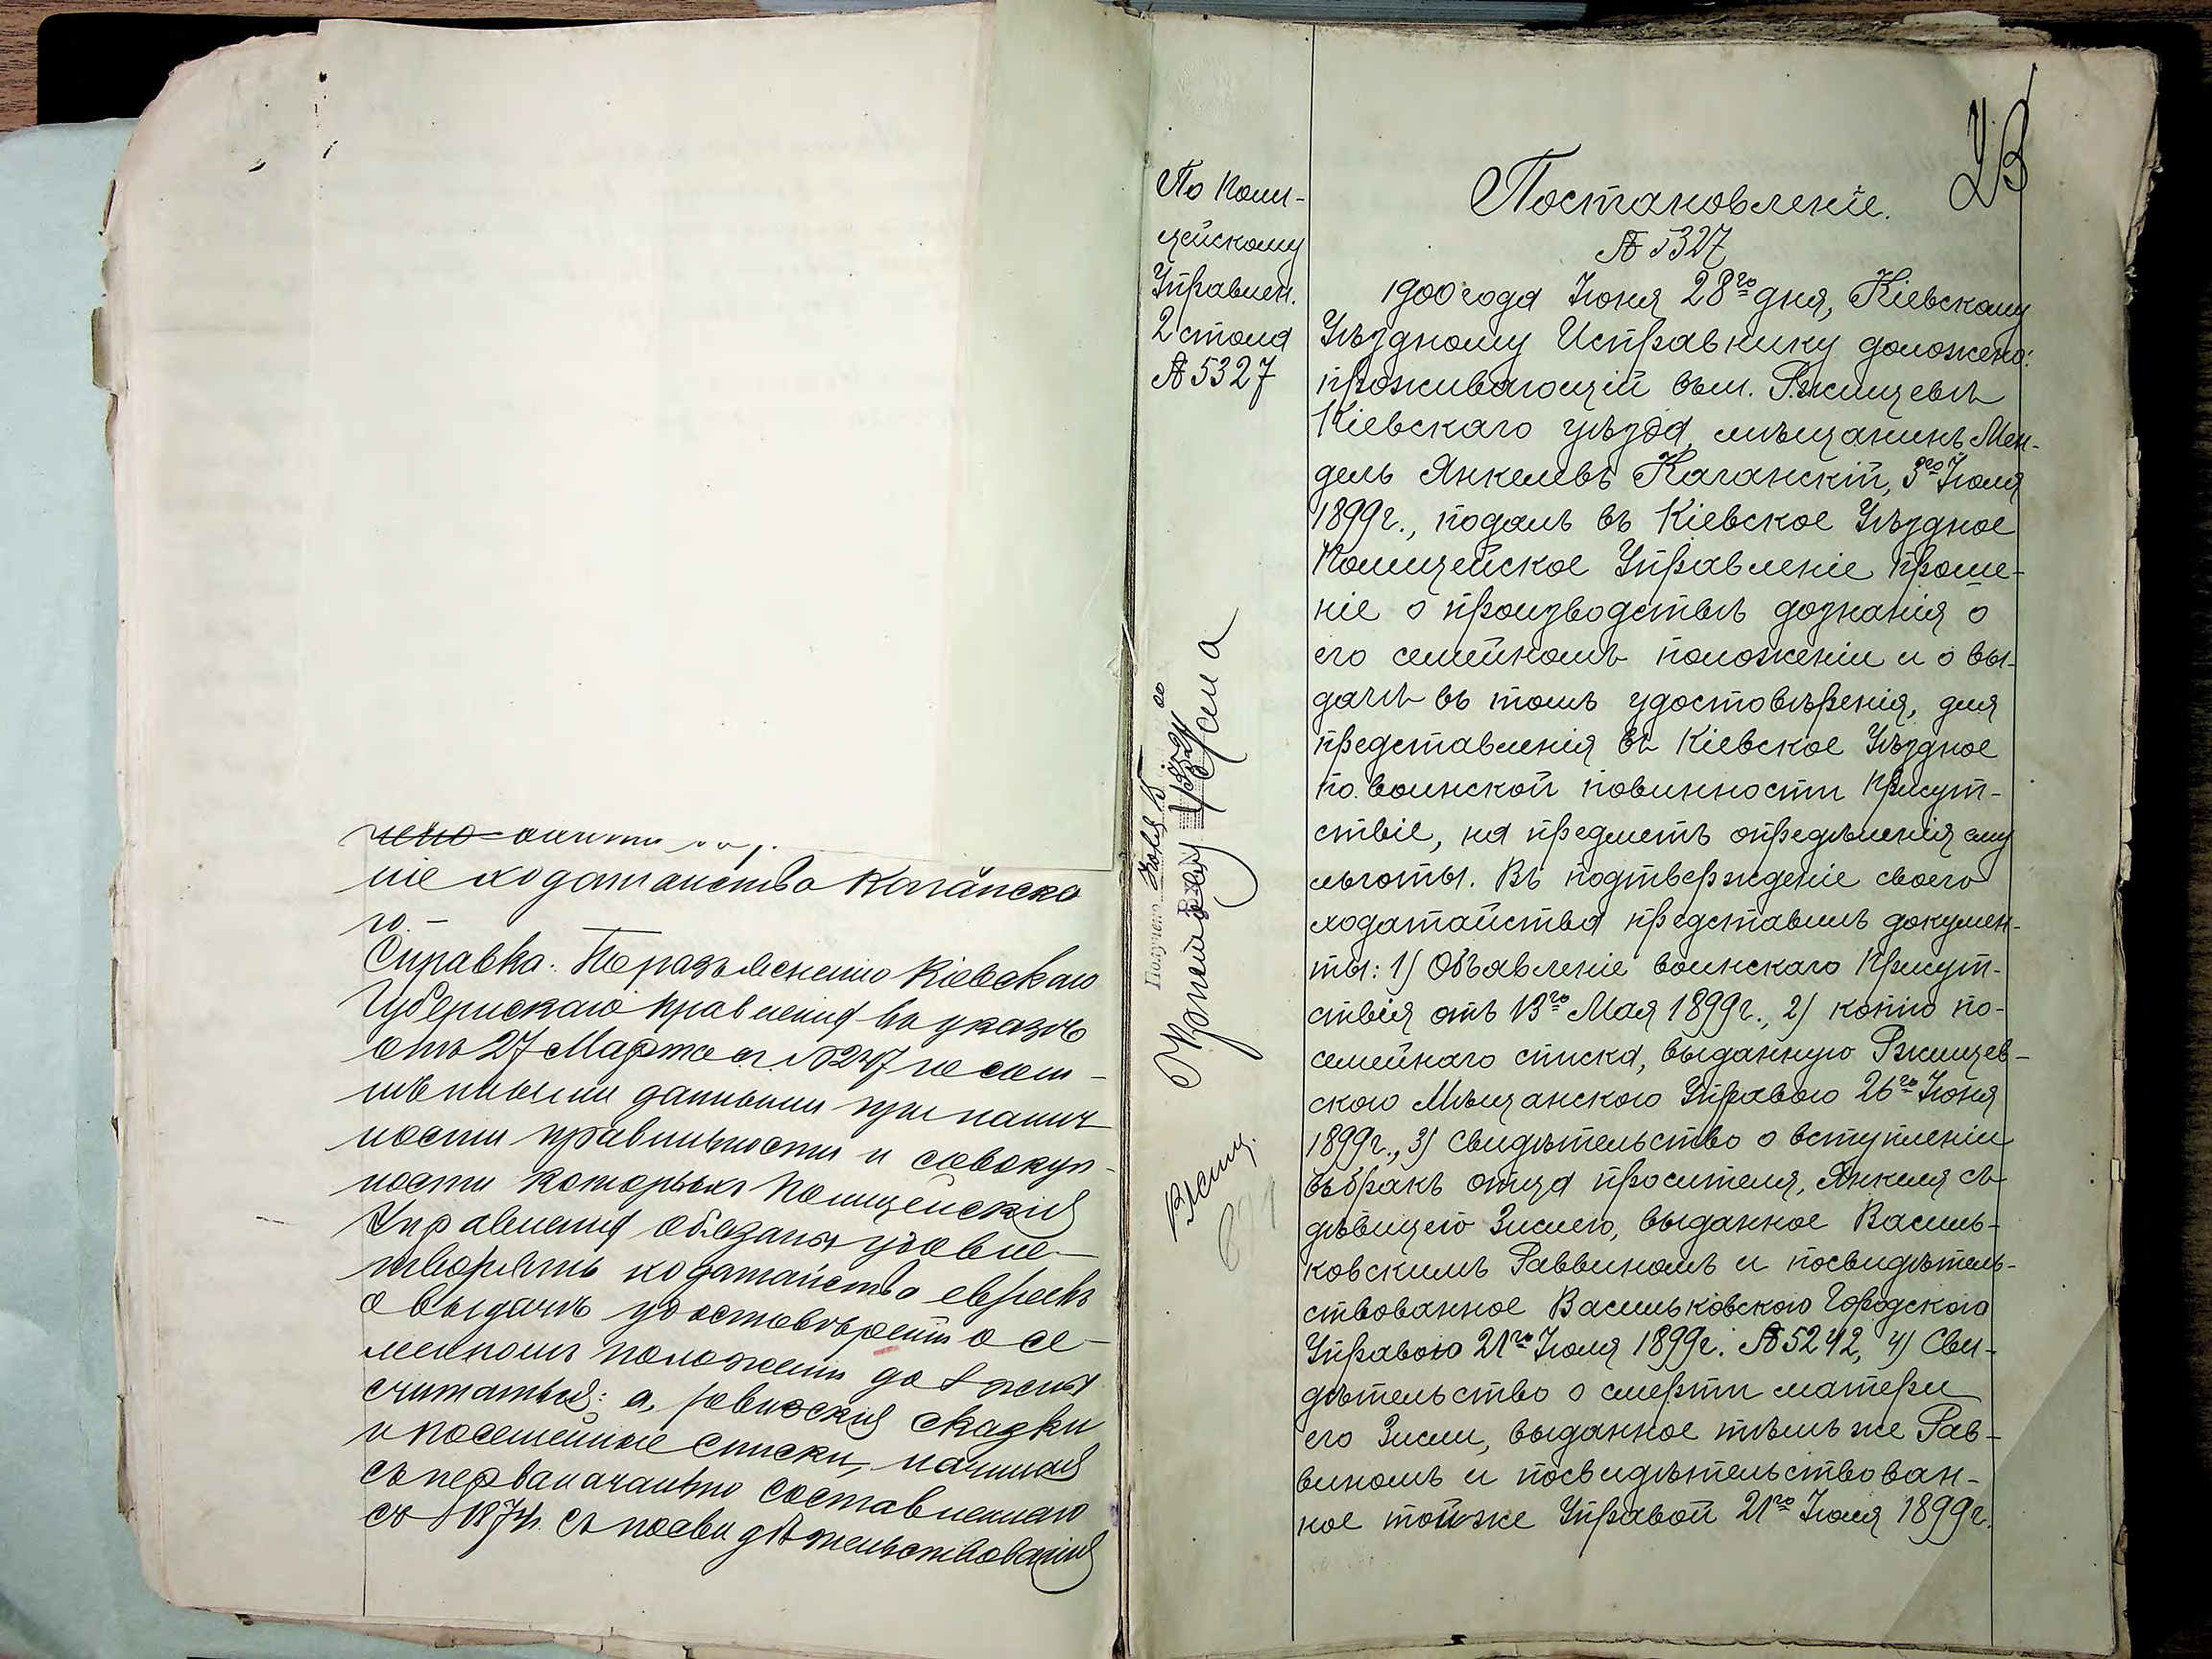 ніе ходатайства Каганска
го.-
Справка. По разъясненію Кіевскаго
Губернскаго Правленія въ указѣ
отъ 27 Марта с.г. №247
данными при налич
ности правильности и совокуп-
ности которыхъ Полицейскія
Управленія обязаны удовле-
творять ходатайства евреевъ
о выдачѣ удостовѣреній о се-
мейномъ положеніи должны
считаться: а, ревизскія сказки
и посемейные списки, начиная
съ первоначально составленнаго
съ 1874г. съ посвидѣтельствованія
По Поли-
цейскому
Управлен.
2 стола
№ 5327
Получено Іюля 15
Постановленіе.
№ 5327
1900 года Іюня 28го дня, Кіевскому
Уѣздному Исправнику доложено:
проживающій въ м. Ржищевѣ
Кіевскаго уѣзда, мѣщанинъ Мен-
дель Янкелевъ Каганскій, 3го Іюля
1899г., подалъ въ Кіевское Уѣздное
Полицейское Управленіе проше-
ніе о производствѣ дознанія о
его семейномъ положеніи и о вы-
дачѣ въ томъ удостовѣренія, для
представленія въ Кіевское Уѣздное
по воинской повинности Присут-
ствіе, на предметъ опредѣленія ему
льготы. Въ подтвержденіе своего
ходатайства представилъ докумен-
ты: 1) Объявленіе воинскаго Присут-
ствія отъ 13го Мая 1899г., 2) копію по-
семейнаго списка, выданную Ржищев-
скою Мѣщанскою Управою 26го Іюня
1899г., 3) свидѣтельство о вступленіи
въ бракъ отца просителя, Янкеля съ
дѣвицею Зислею, выданное Василь-
ковскимъ Раввиномъ и посвидѣтель-
ствованное Васильковскою Городскою
Управою 21го Іюля 1899г. № 5242, 4) Сви-
дѣтельство о смерти матери
его Зисли, выданное тѣмъ же Рав-
виномъ и посвидѣтельствован-
ное той же Управой 21го Іюля 1899г.